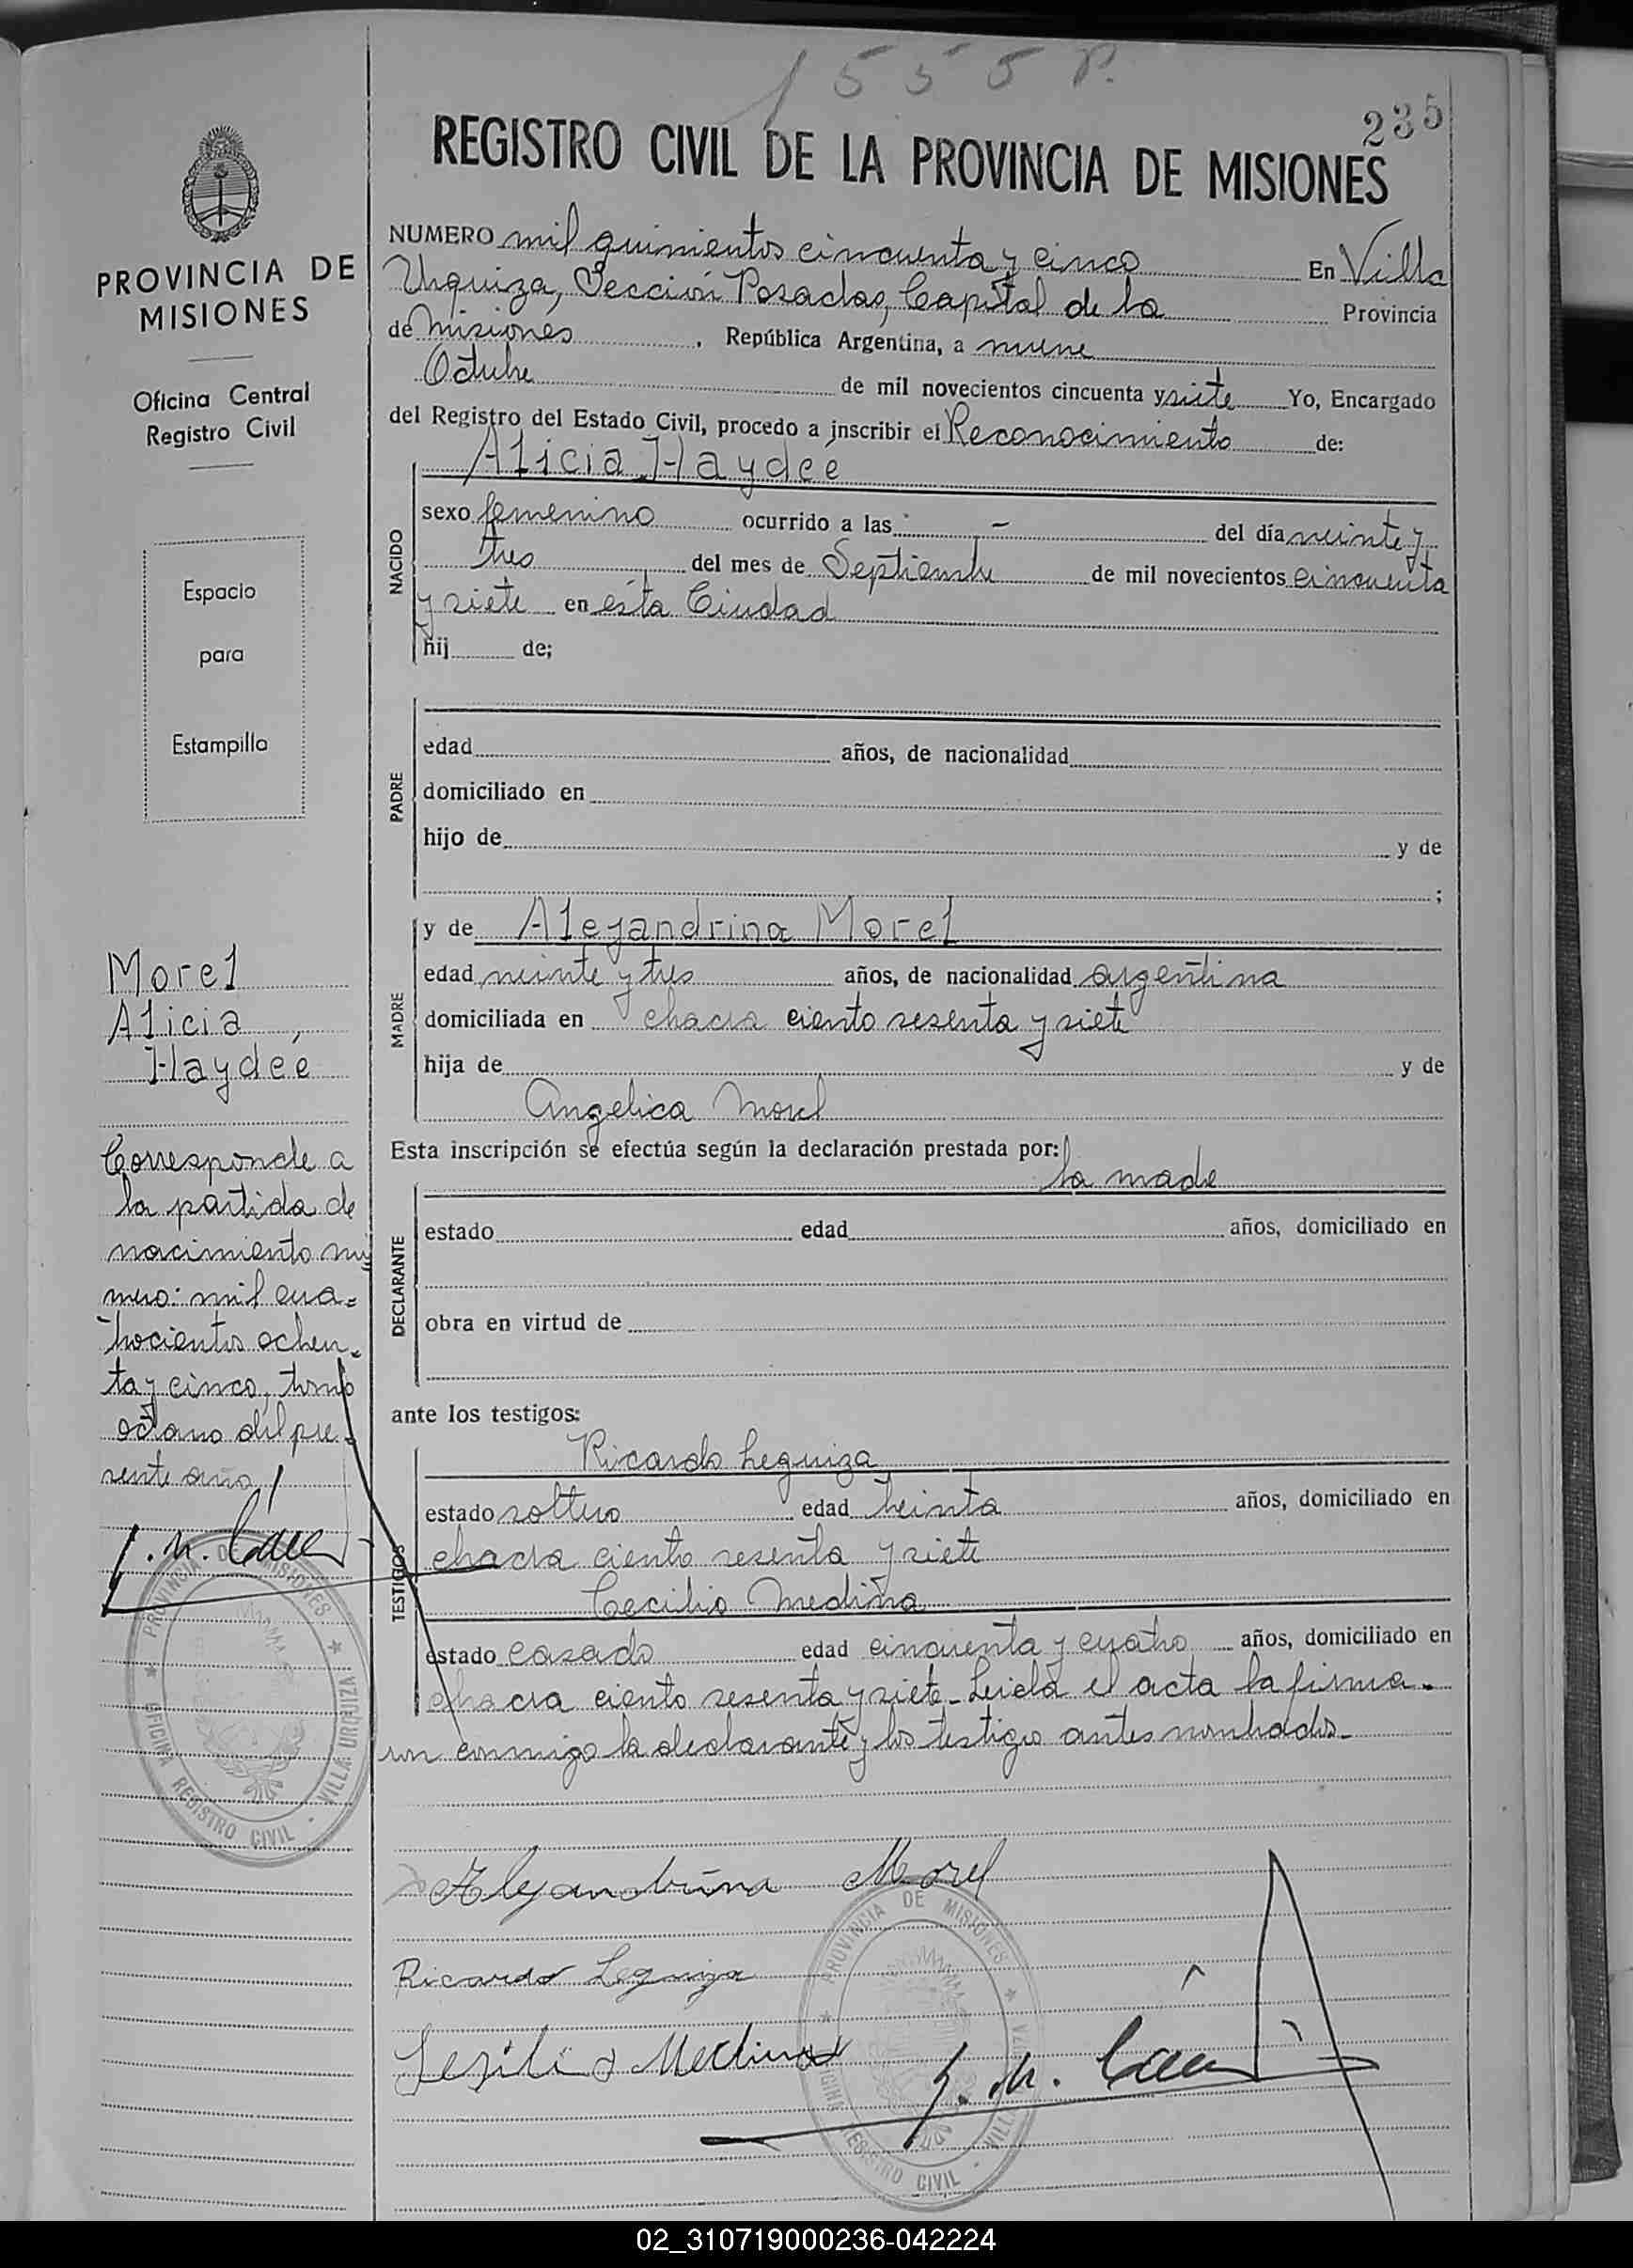 1555 P.
235
REGISTRO CIVIL DE LA PROVINCIA DE MISIONES
PROVINCIA DE
MISIONES
Oficina Central
Registro Civil
Espacio
para
Estampilla
Morel
Alicia
Haydée
Corresponde a
la partida de
nacimiento nú
mero: mil cua=
trocientos ochen-
ta y cinco, tomo
octavo del pre-
sente año
PROVINCIA DE MISIONES
OFICINA REGISTRO CIVIL - VILLA URQUIZA
NUMERO mil quinientos cincuenta y cinco En Villa
Urquiza, Sección Posadas, Capital de la Provincia
de Misiones, República Argentina, a nueve
Octubre de mil novecientos cincuenta y siete Yo, Encargado
del Registro del Estado Civil, procedo a inscribir el Reconocimiento de:
Alicia Haydée
NACIDO
sexo femenino ocurrido a las - del día veinte y
tres del mes de Septiembre de mil novecientos cincuenta
y siete en ésta Ciudad
hij de;
PADRE
edad años, de nacionalidad
domiciliado en
hijo de y de
;
MADRE
y de Alejandrina Morel
edad veinte y tres años, de nacionalidad argentina
domiciliada en chacra ciento sesenta y siete
hija de y de
Angelica Morel
Esta inscripción se efectúa según la declaración prestada por: la madre
DECLARANTE
estado edad años, domiciliado en
obra en virtud de
ante los testigos:
TESTIGOS
Ricardo Leguiza
estado soltero edad treinta años, domiciliado en
chacra ciento sesenta y siete
Cecilio Medina
estado casado edad cincuenta y cuatro años, domiciliado en
chacra ciento sesenta y siete - Leida el acta la firma-
ron conmigo la declarante y los testigos antes nombrados.-
Alejandrina Morel
Ricardo Leguiza
Sesilio Medina
PROVINCIA DE MISIONES
OFICINA REGISTRO CIVIL - VILLA URQUIZA
02_310719000236-042224